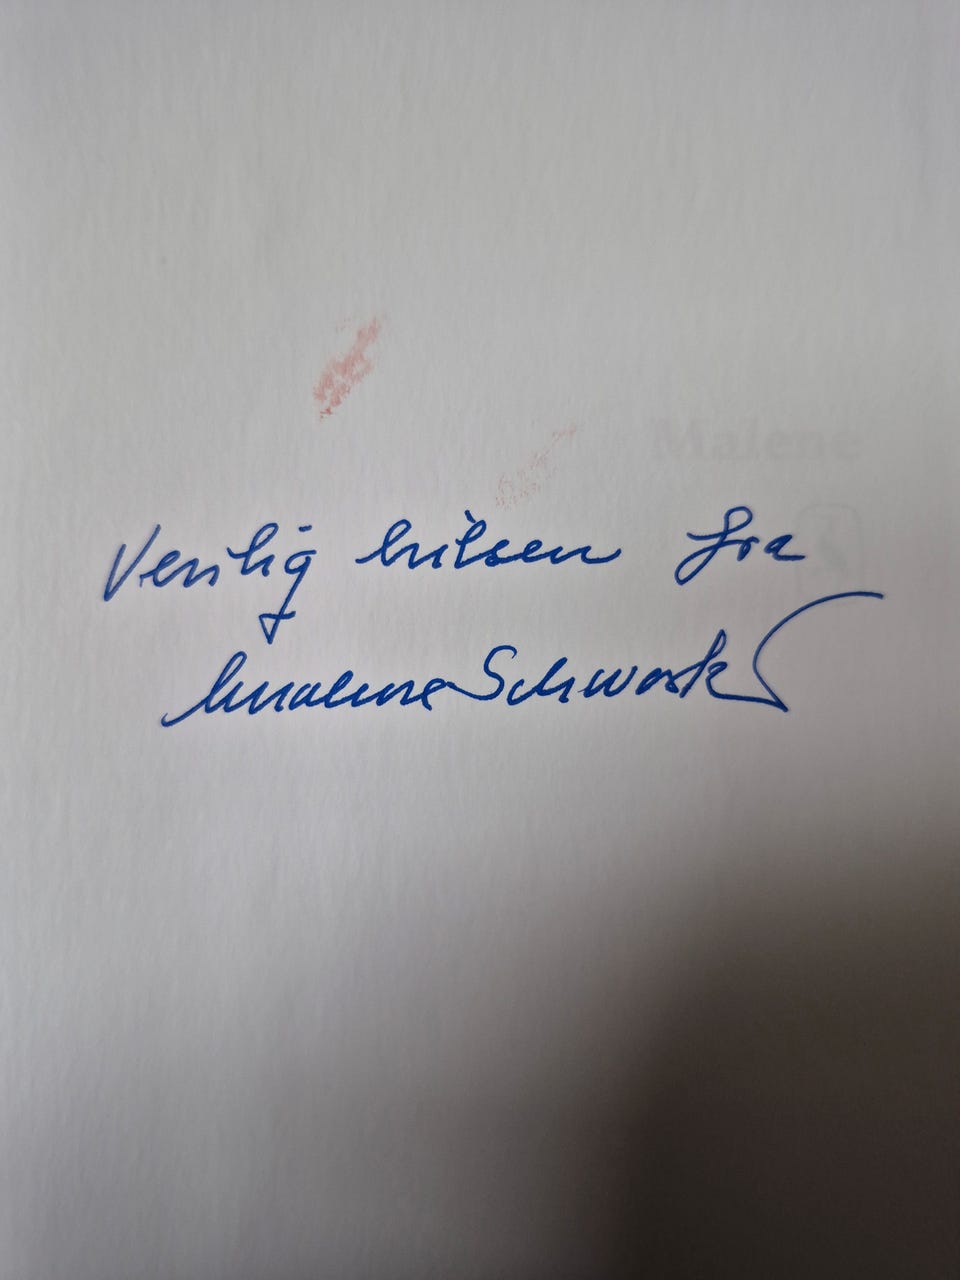 Malene
Venlig hilsen fra
Malene Schwartz